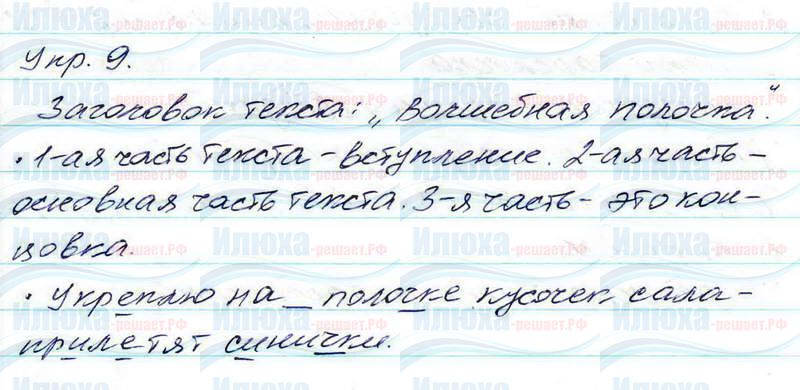 Упр. 9.
Заголовок текста: „Волшебная полочка".
· 1-ая часть текста - вступление. 2-ая часть -
основная часть текста. 3-я часть - это кон-
цовка.
· Укреплю на _ полочке кусочек сала -
прилетят синички.